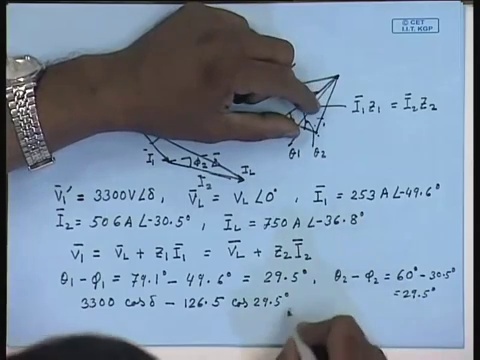 © CET
I.I.T. KGP
Ī₁Z₁ = Ī₂Z₂
θ₁ θ₂
Ī₁ φ₂
I₂ I_L
V̄₁' = 3300V∠δ , V̄_L = V_L∠0° , Ī₁ = 253A∠-49.6°
Ī₂ = 506A∠-30.5° , Ī_L = 750A∠-36.8°
V̄₁ = V̄_L + Z₁Ī₁ = V̄_L + Z₂Ī₂
θ₁-φ₁ = 79.1° - 49.6° = 29.5° , θ₂-φ₂ = 60° - 30.5°
= 29.5°
3300 cosδ - 126.5 cos 29.5°